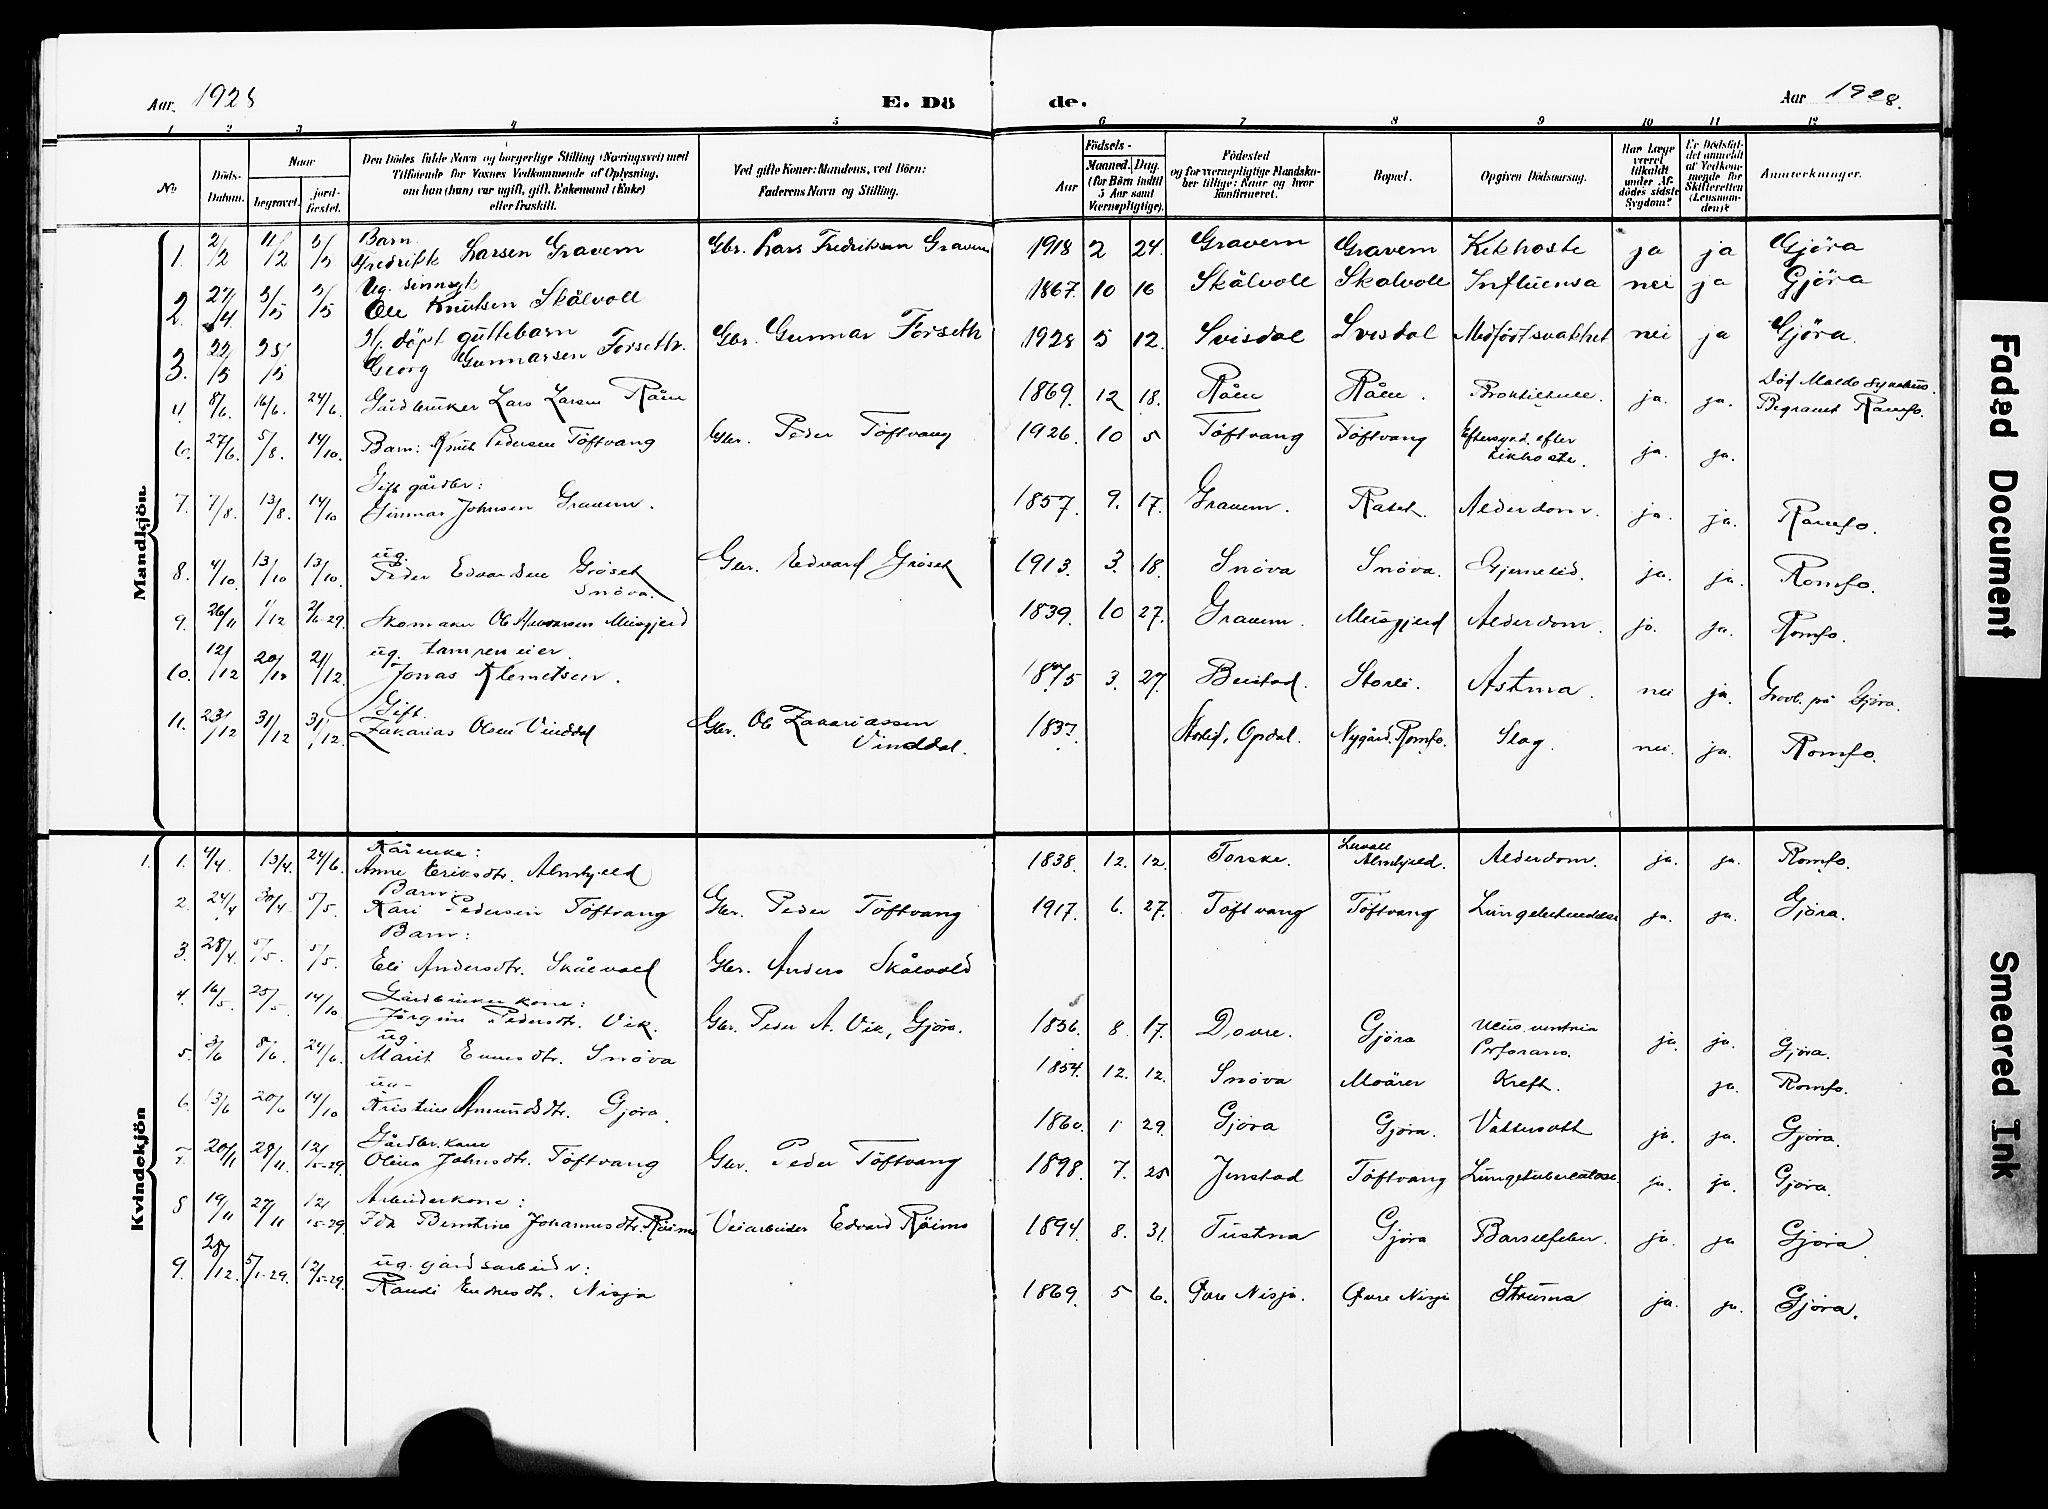 Aar. 1928 E. Dö de. Aar 1928.
1 2 3 4 5 6 7 8 9 10 11 12
No.
Döds-Datum.
Naar
begravet.
jord-fæstet.
Den Dödes fulde Navn og borgerlige Stilling (Næringsvei) med
Tilföiende for Voxnes Vedkommende af Oplysning,
om han (hun) var ugift, gift, Enkemand (Enke)
eller fraskilt.
Ved gifte Koner: Mandens, ved Börn:
Faderens Navn og Stilling.
Födsels-
Aar
Maaned. Dag.
(for Börn indtil
5 Aar samt
Værnepligtige).
Födested
og for værnepligtige Mandska-
ber tillige: Kaar og hvor
konfirmeret.
Bopæl.
Opgiven Dödsaarsag.
Har Læge
været
tilkaldt
under Af-
dödes sidste
Sygdom?
Er Dödsfal-
det anmeldt
af Vedkom-
mende for
Skifteretten
(Lensman-
den)?
Anmærkninger.
Mandkjön
Barn
1. 2/2 11/2 5/5 Fredrikk Larsen Gravem Gbr. Lars Fredriksen Gravem 1918 2 24. Gravem Gravem Kikhoste ja ja Gjöra
Ug. sinnsyk
2. 27/4 5/5 5/5 Ole Knutsen Skålvoll 1867. 10 16 Skålvoll Skålvoll Influensa nei ja Gjöra
Hj. döpt guttebarn
3. 22/5 28/5 Georg Gunnarsen Forseth. Gbr. Gunnar Forseth 1928 5 12. Svisdal Svisdal Medfödt svakhet nei ja Gjöra.
4. 8/6. 16/6. 24/6. Gårdbruker Lars Larsen Råen 1869. 12 18. Råen Råen. ja. ja.
Begravet Romfo.
6. 27/6. 5/8. 14/10. Barn: Knut Pedersen Töftvang Gbr. Peder Töftvang 1926. 10 5 Töftvang Töftvang Eftersygd. efter
kikhoste. ja. ja.
Gift gårdbr:
7. 7/8. 13/8. 14/10 Gunnar Johnsen Gravem. 1857. 9. 17. Gravem. Alderdom. ja. ja. Romfo.
ug.
8. 4/10. 13/10 13/10. Peder Edvardsen Gröset Gbr. Edvard Gröset 1913. 3. 18. Snöva Snöva. ja. ja. Romfo.
Snöva.
9. 26/11 1/12 2/6-29. Skomaker Ole Halvorsen Meisgjerd 1839. 10 27. Gravem. Meisgjerd Alderdom. ja. ja. Romfo.
ug.
10. 12/12 20/12 21/12. Jonas Klemetsen. 1875 3. 27. Beistad. Storli. Astma. nei ja. Gravl. på Gjöra.
Gift.
11. 23/12 31/12 31/12. Zakarias Olsen Vinddal Gbr. Ole Zakariassen
Vinddal. 1837. Storlid, Opdal. Nygård, Romfo. Slag. nei. ja. Romfo.
Kvindekjön
1. 1. 4/4. 13/4. 24/6. Kårenke:
Anne Eriksdtr. Almskjeld 1838. 12. 12. Torske. Almskjeld. Alderdom. ja. ja. Romfo.
Barn:
2. 24/4 30/4 5/5. Kari Pedersen Töftvang Gbr. Peder Töftvang 1917. 6. 27. Töftvang Töftvang Lungebetendelse ja. ja. Gjöra.
Barn:
3. 28/4. 5/5. 5/5. Eli Andersdtr. Skålvold Gbr. Anders Skålvold
Gårdbrukerkone:
4. 16/5. 25/5. 14/10 Jörgine Pedersdtr. Vik. Gbr. Peder A. Vik, Gjöra. 1856. 8. 17. Dovre. Gjöra Ulcus ventricu
Perforans. ja. ja. Gjöra.
ug.
5. 3/6 8/6. 24/6. Marit Endresdtr. Snöva 1854. 12. 12. Snöva Moårer Kreft. ja. Romfo.
ug.
6. 13/6 20/6 14/10 Kristine Amundsdtr. Gjöra. 1860. 1. 29. Gjöra Gjöra. Vattersott ja. ja. Gjöra.
Gårdbr. kone
7. 20/11 28/11. 12/5-29. Olina Johnsdtr. Töftvang Gbr. Peder Töftvang 1898. 7. 25 Jenstad Töftvang Lungetuberkulose. ja. ja. Gjöra.
Arbeiderkone:
8 19/11 27/11 12/5-29. Ida Berntine Johannesdtr. Röimo Veiarbeider Edvard Röimo 1894. 8. 31. Tustna Gjöra Barselfeber. ja. ja Gjöra.
ug. gårdsarbeider:
9. 28/12. 5/1-29. 12/5-29. Randi Endresdtr. Nisja 1869. 5 6. Övre Nisja. Övre Nisja Struma ja. ja. Gjöra.
Faded Document
Smeared Ink